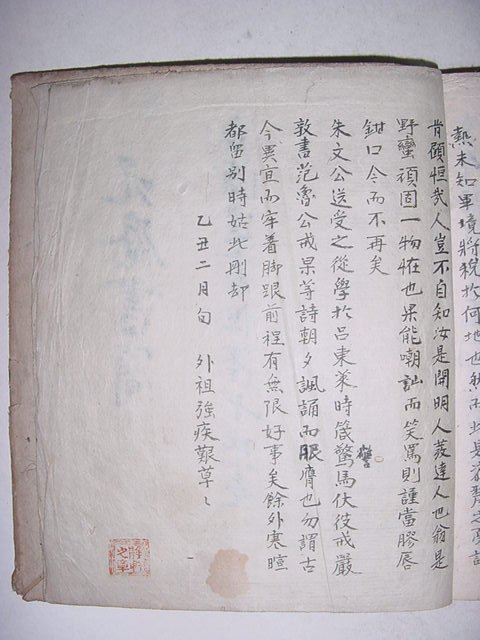 熱未知畢境將稅於何地也
肯顧恒貳人豈不自知汝是開明人發達人也翁是
野蠻頑固一物怪也果能嘲訕而笑罵則謹當膠唇
鉗口今而不再矣
朱文公送受之從學於呂東萊時箴警馬伏彼戒嚴
敦書范魯公戒杲等詩朝夕諷誦而服膺也勿謂古
今異宜而牢着脚跟前程有無限好事矣餘外寒暄
都留別時姑此剛却
乙丑二月旬 外祖強疾艱草〻